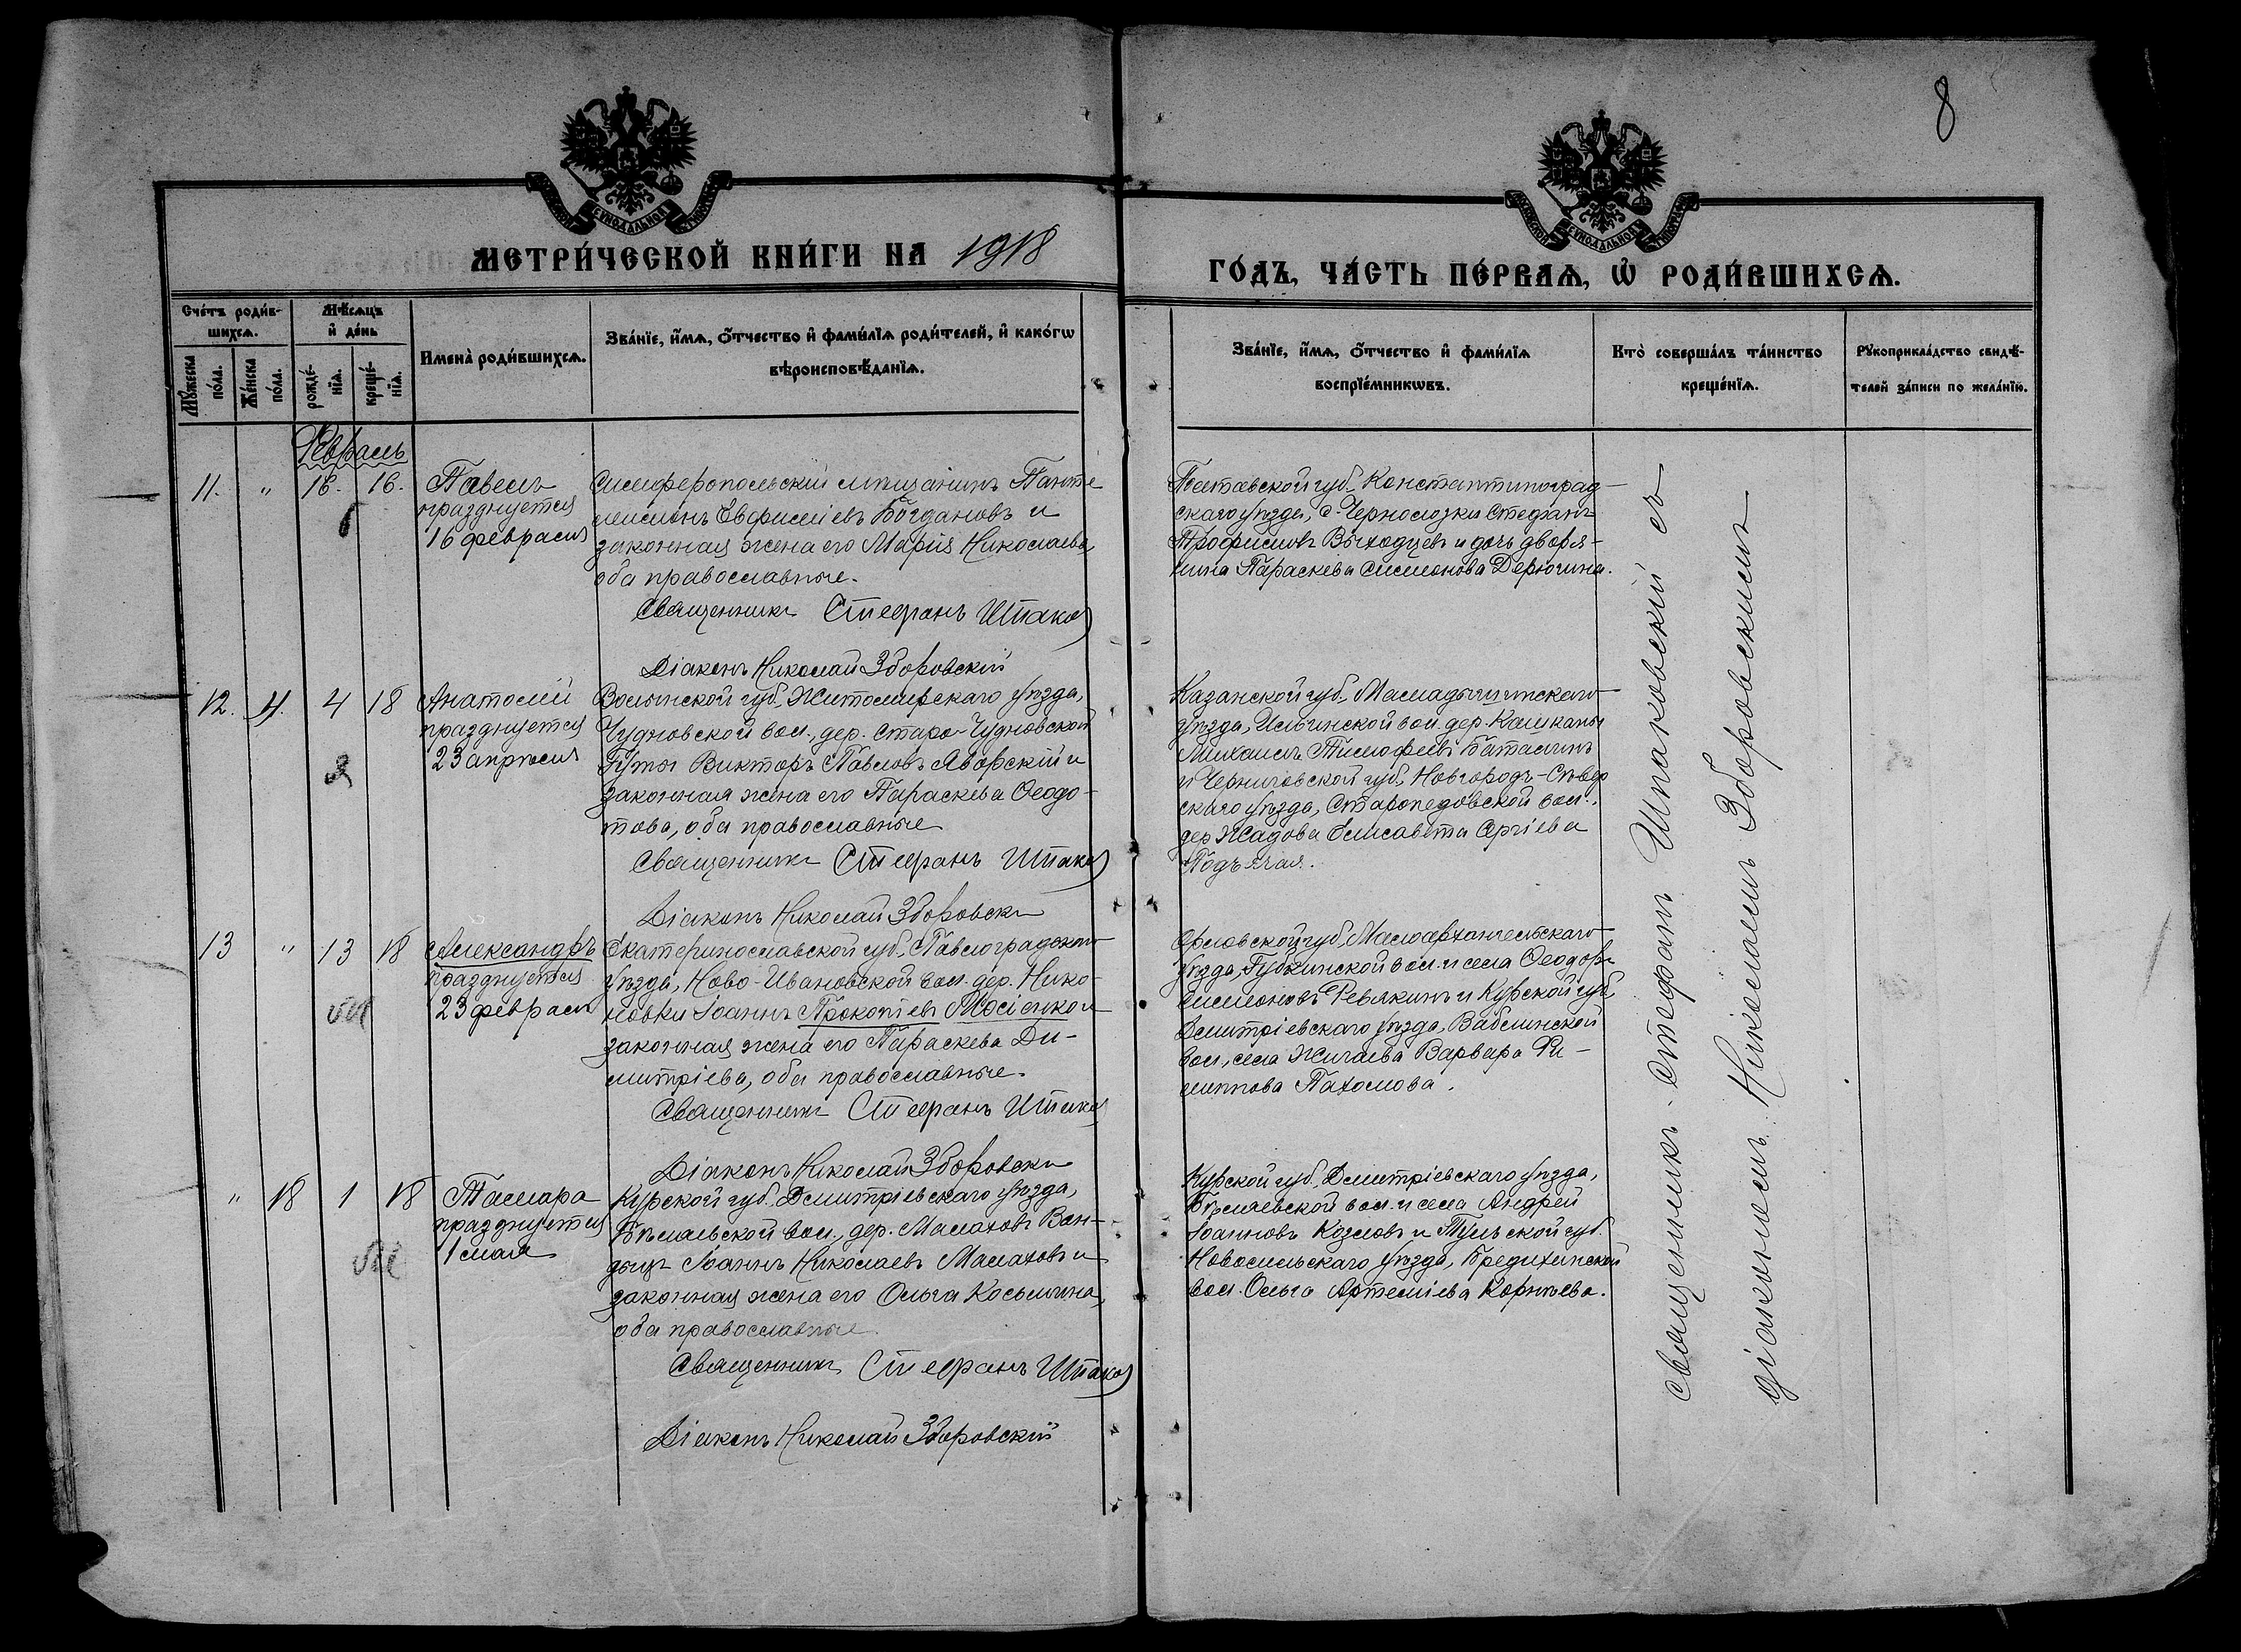 8
МЕТРИ́ЧЕСКОЙ КНИ́ГИ НА 1918
ГО́ДЪ, ЧА́СТЬ ПЕ́РВАѦ, Ѡ҆ РОДИ́ВШИХСѦ.
Сче́тъ роди́в-
шихсѧ.
Мѣ́сѧцъ
и҆ де́нь
Мꙋ́жеска
по́ла.
Же́нска
по́ла.
рожде́-
нїѧ.
креще́-
нїѧ.
Имена̀ роди́вшихсѧ.
Зва́нїе, и҆́мѧ, ѻ҆́тчество и҆ фами́лїѧ роди́телей, и҆ како́гѡ
вѣроисповѣ́данїѧ.
Зва́нїе, и҆́мѧ, ѻ҆́тчество и҆ фами́лїѧ
воспрїе́мникѡвъ.
Кто̀ соверша́лъ та́инство
креще́нїѧ.
Рꙋкоприкла́дство свидѣ́-
телей за́писи по жела́нїю.
Февраль
11. " 16. 16.
Павелъ
празднуется
16 февраля
Симферопольскій мѣщанинъ Панте
леимонъ Евфиміевъ Богдановъ и
законная жена его Марія Николаева,
оба православные.
Священникъ Стефанъ Шпако
Діаконъ Николай Зборовскій
Полтавской губ., Константиноград-
скаго уѣзда, с. Черноглазки Стефанъ
Трофимовъ Выходцевъ и дочь дворя-
нина Параскева Симеонова Дерюгина.
12. 4 18
Анатолій
празднуется
23 апрѣля
Волынской губ., Житомирскаго уѣзда,
Чудновской вол., дер. Старо-Чудновской
Гуты Викторъ Павловъ Яворскій и
законная жена его Параскева Ѳеодо-
това, оба православные
Священникъ Стефанъ Шпако
Діаконъ Николай Зборовски
Казанской губ., Мамадышскаго
уѣзда, Ильинской вол. дер.
Михаилъ Тимофеевъ Баталинъ
и Черниговской губ., Новгородъ-Сѣвер
скаго уѣзда, вол.,
дер. Жадова Елисавета Сергіева
Подъячая.
13 " 13 18
Александръ
празднуется
23 февраля
Екатеринославской губ., Павлоградскаго
уѣзда, Ново-Ивановской вол. дер. Нико-
новки Іоаннъ Прокопіевъ Мосіенко и
законная жена его Параскева Ди-
митріева, оба православные.
Священникъ Стефанъ Шпако
Діаконъ Николай Зборовски
Орловской губ., Малоархангельскаго
уѣзда, Губкинской вол. и села Ѳеодоръ
Симеоновъ Ревякинъ и Курской губ.,
Дмитріевскаго уѣзда,
вол., села Жигаева Варвара Фи-
липпова Пахомова.
" 18 1 18
Тамара
празднуется
1 мая
Курской губ., Дмитріевскаго уѣзда,
вол., дер. Малаховъ
Іоаннъ Николаевъ Малаховъ и
законная жена его Ольга Косьмина,
оба православные.
Священникъ Стефанъ Шпако
Діаконъ Николай Зборовскій
Курской губ., Дмитріевскаго уѣзда,
вол. и села Андрей
Іоанновъ Козловъ и Тульской губ.
Новосильскаго уѣзда, Бредихинской
вол. Ольга Артеміева Корнѣева.
священникъ Стефанъ Шпаковскій съ
діакономъ Николаемъ Зборовскимъ